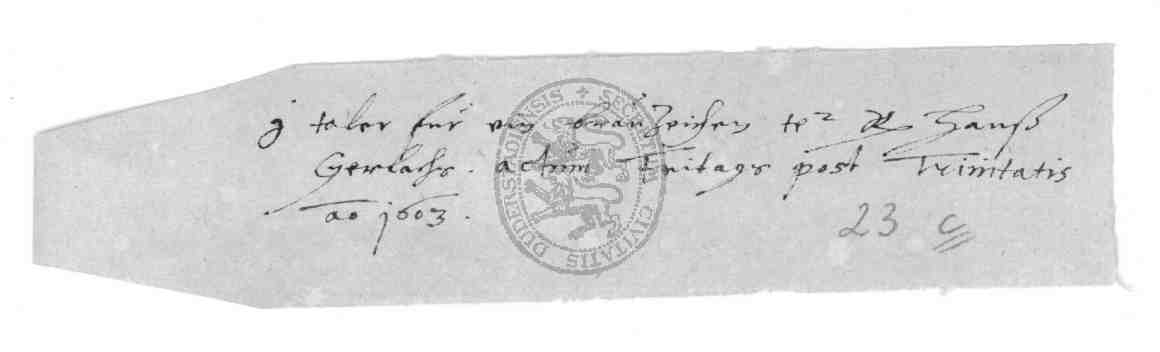 j taler fur ein brauzeichen Hanß
Gerlachs . actum Fritags post Trinitatis
ao 1603 .
23 c
SECRETUM CIVITATIS DUDERSTADENSIS